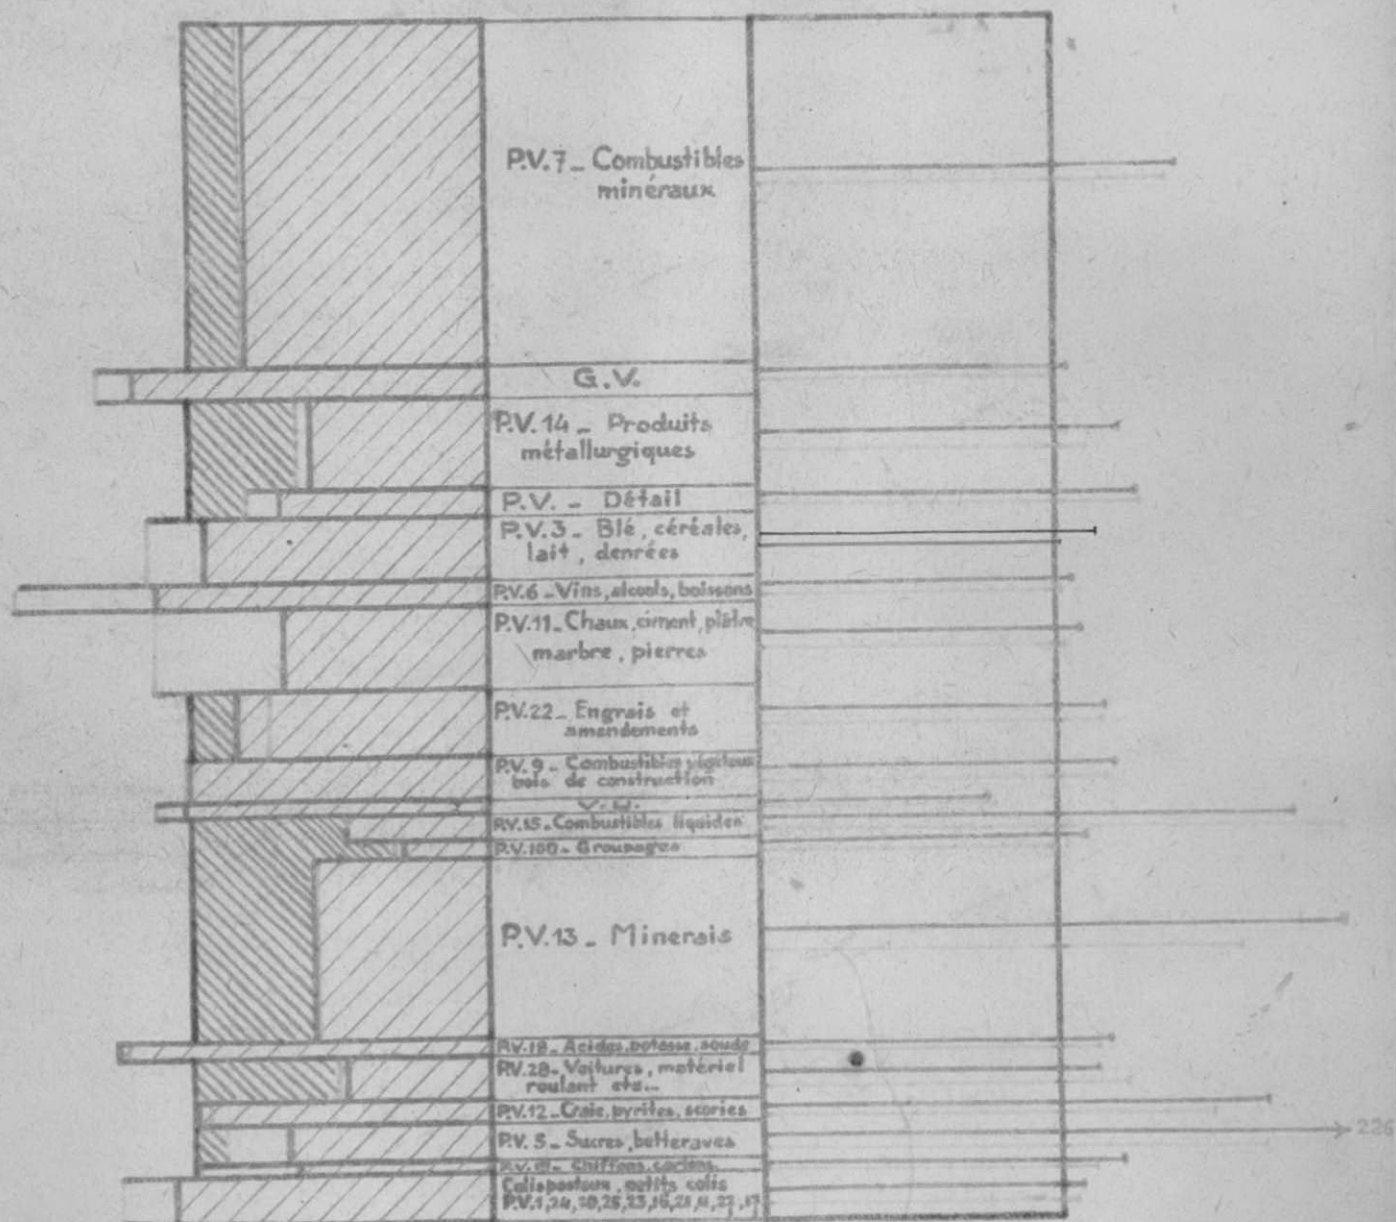 P.V.7_ Combustibles
minéraux
G.V.
P.V.14_ Produits
métallurgiques
P.V. - Détail
P.V.3_ Blé, céréales,
lait, denrées
P.V.6_Vins, alcools, boissons
P.V.11_Chaux, ciment, plâtre
marbre, pierres
P.V.22_ Engrais et
amendements
P.V.9_ Combustibles végétaux
bois de construction
P.V.15_Combustibles liquides
P.V.100_ Groupages
P.V.13_ Minerais
P.V.18_ Acides, potasse, soude
P.V.28_ Voitures, matériel
roulant etc...
P.V.12_Craie, pyrites, scories
P.V.5_ Sucres, betteraves
226
Chiffons, cartons
Colis postaux, petits colis
P.V.1,24,20,25,23,16,21,